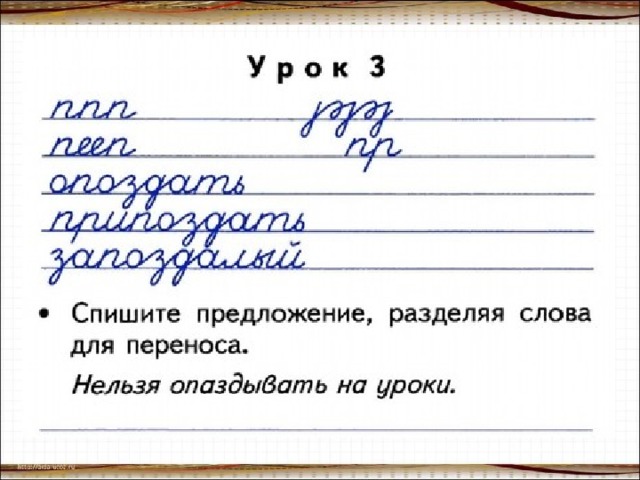 Урок 3
ппп рэрэрэ
пееп пр
опоздать
припоздать
запоздалый
• Спишите предложение, разделяя слова
для переноса.
Нельзя опаздывать на уроки.